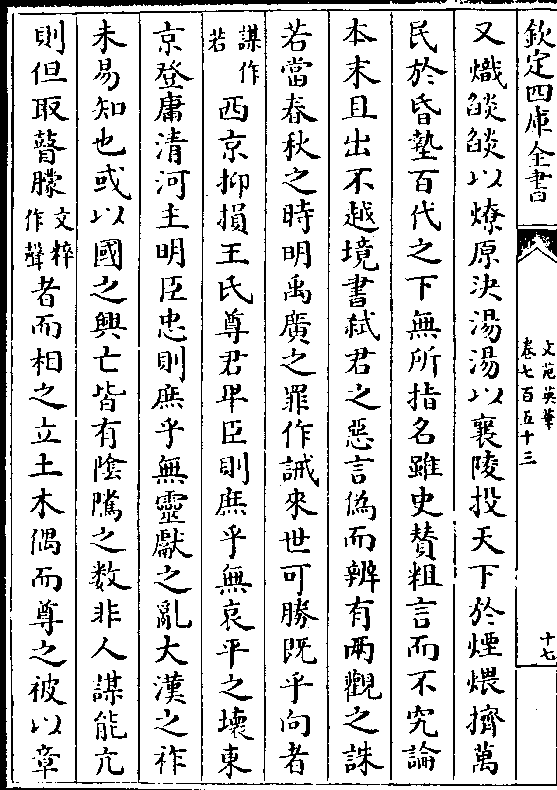 欽定四庫全書
文苑英華
卷七百五十三
十七
又熾燄燄以燎原決湯湯以襄陵投天下於煙煨擠萬
民於昏墊百代之下無所指名雖史贊粗言而不究論
本末且出不越境書弑君之惡言偽而辨有兩觀之誅
若當春秋之時明禹廣之罪作誡來世可勝既乎向者
謀作若西京抑損王氏尊君卑臣則庶乎無哀平之壊東
京登庸清河主明臣忠則庶乎無靈獻之亂大漢之祚
未易知也或以國之興亡皆有隂隲之数非人謀能亢
則但取瞽矇文粹作聲者而相之立土木偶而尊之被以章